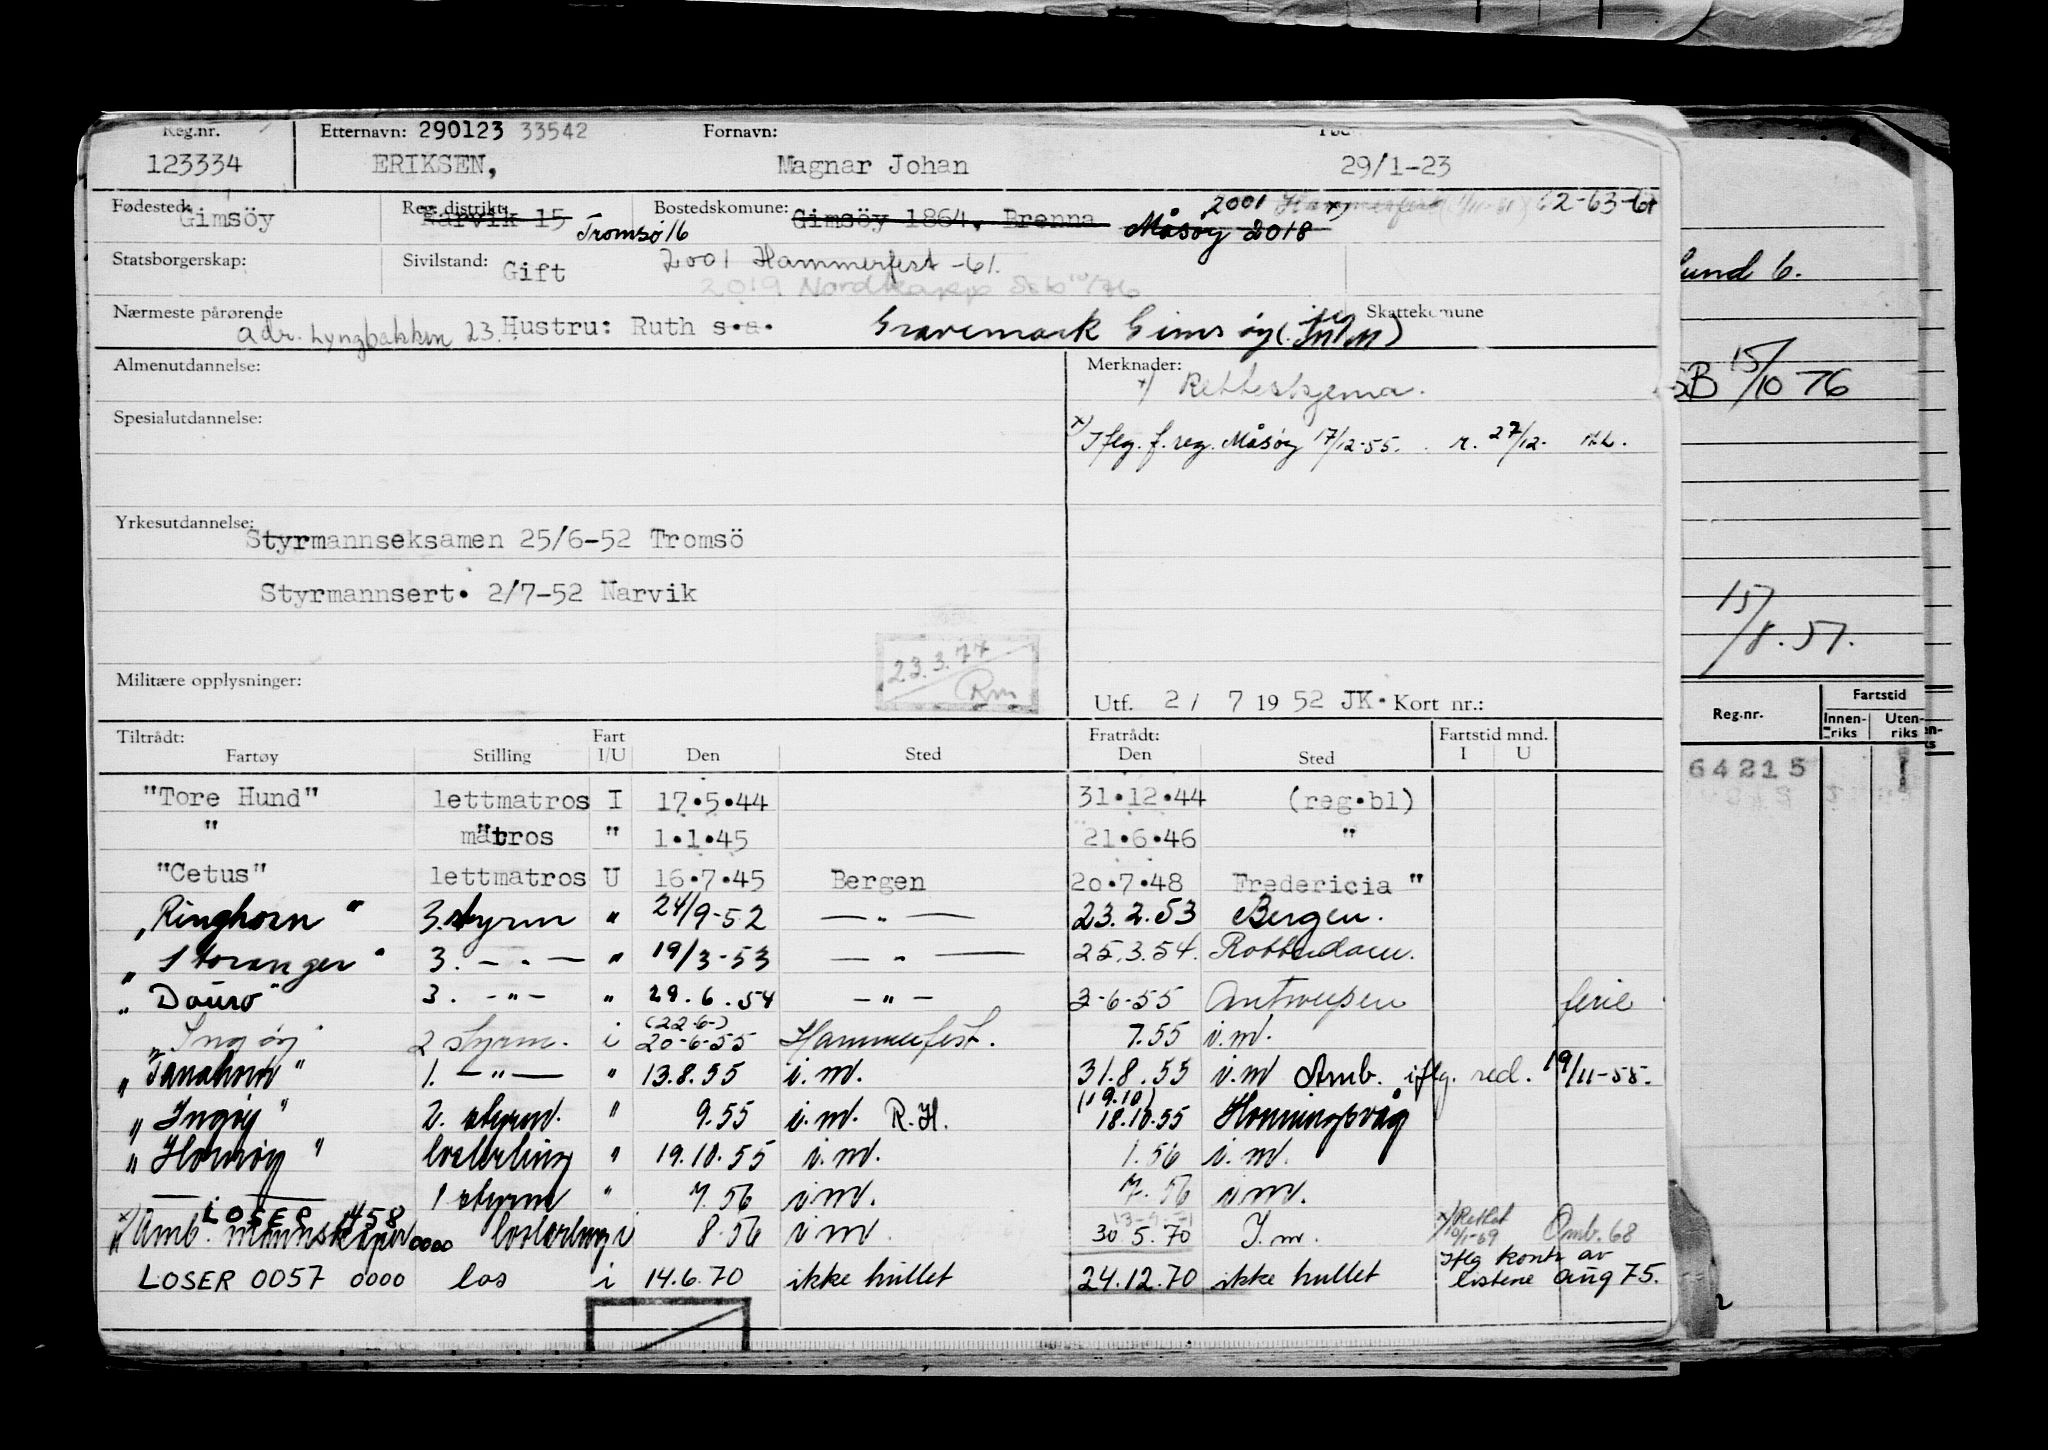 Reg.nr. Etternavn: 290123 33542 Fornavn:
123334 ERIKSEN, Magnar Johan 29/1-23
Fødested: Gimsöy Reg. distrikt: Narvik 15 Tromsø 16 Bostedskomune: Gimsöy 1864. Brenna Måsøy 2018 2001 Hammerfest 62-63-64
Statsborgerskap: Sivilstand: Gift 2001 Hammerfest -61.
2019 Nordkapp
Nærmeste pårørende Skattekomune
adr. Lyngbakken 23. Hustru: Ruth s.a.
Almenutdannelse: Merknader:
x) Retteskjema.
Spesialutdannelse:
x) Iflg. f. reg. Måsøy 17/12-55. r. 27/12-
Yrkesutdannelse:
Styrmannseksamen 25/6-52 Tromsö
Styrmannsert. 2/7-52 Narvik
23.3.77
Rm
Militære opplysninger:
Utf. 2/ 7 19 52 JK. Kort nr.:
Tiltrådt: Fart Fratrådt: Fartstid mnd.
Fartøy Stilling I/U Den Sted Den Sted I U
"Tore Hund" lettmatros I 17.5.44 31.12.44 (reg.bl)
" matros " 1.1.45 21.6.46 "
"Cetus" lettmatros U 16.7.45 Bergen 20.7.48 Fredericia "
"Ringhorn" 3. styrm " 24/9-52 — " — 23.2.53 Bergen.
"Storanger" 3. — " — " 19/3-53 — " — 25.3.54. Rotterdam.
"Douro" 3. — " — " 29.6.54 — " — 2-6-55 Antwerpen ferie
"Ingøy" 2 styrm. i (22-6-) 20-6-55 Hammerfest. 7.55 i.m.
"Tanahorn" 1. — " — " 13.8.55 i.m. 31.8.55 i.m Amb. iflg. red. 19/11-55.
"Ingøy" 2. styrm. " 9.55 i.m. R.H. (19.10) 18.10.55 Honningsvåg
"Hornøy" " 19.10.55 i.m. 1.56 i.m.
— — 1 styrm " 7.56 i.m. 7.56 i.m.
LOSER 1458
x) "Amb. mannskaper 0000 i 8.56 i m. 30.5.70 I.m. x) Rettet 10/1-69 Omb. 68
LOSER 0057 0000 los i 14.6.70 ikke hullet 24.12.70 ikke hullet Iflg kontr av listene aug 75.
Lund 6.
SB 15/10 76
15/8.57.
Reg.nr. Fartstid
Innen-riks Uten-riks
64215